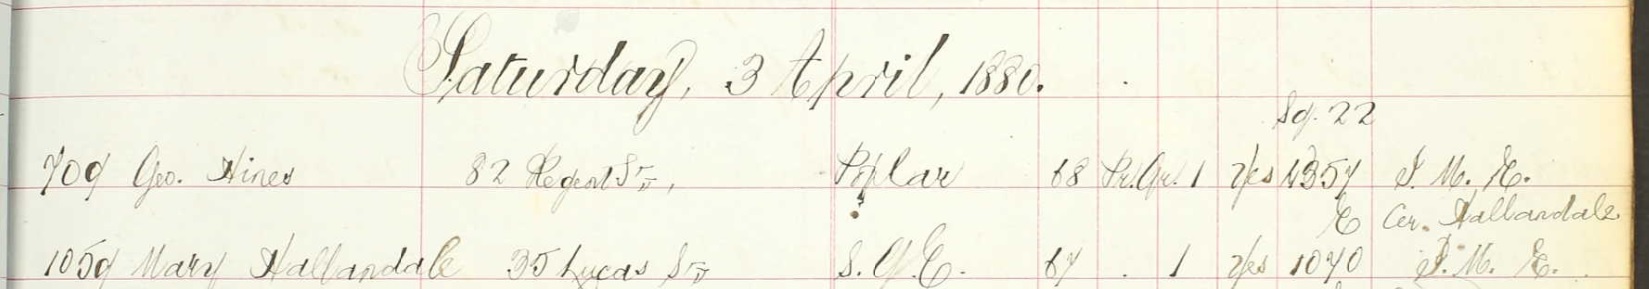 Saturday, 3 April, 1880.
Sq. 22
709 Geo. Hines 82 Regent St., Poplar 68 Pr. Gr. 1 Yes 4357 J. M. E.
E Cer. Hallandale
1059 Mary Hallandale 35 Lucas St. S. G. E. 67 . 1 Yes 1070 J. M. E.